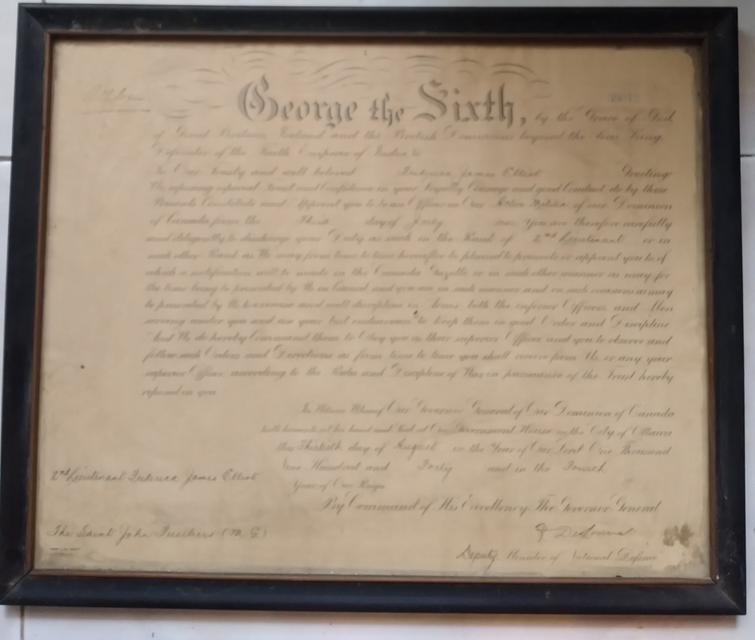 George the Sixth, by the Grace of God
of Great Britain, Ireland and the British Dominions beyond the Seas King,
Defender of the Faith Emperor of India &c
To Our Trusty and well beloved Frederick James Elliot Greeting:
We reposing especial Trust and Confidence in your Loyalty Courage and good Conduct do by these
Presents Constitute and Appoint you to be an Officer in Our Active Militia of our Dominion
of Canada from the Third day of July You are therefore carefully
and diligently to discharge your Duty as such in the Rank of 2nd Lieutenant or in
such other Rank as We may from time to time hereafter be pleased to promote or appoint you to of
which a notification will be made in the Canada Gazette or in such other manner as may for
the time being be prescribed by Us in Council and you are in such manner and on such occasions as may
be prescribed by Us to exercise and well discipline in Arms both the inferior Officers and Men
serving under you and use your best endeavour to keep them in good Order and Discipline
And We do hereby Command them to Obey you as their superior Officer and you to observe and
follow such Orders and Directions as from time to time you shall receive from Us or any your
superior Officer according to the Rules and Discipline of War in pursuance of the Trust hereby
reposed in you
In Witness Whereof Our Governor General of Our Dominion of Canada
hath hereunto set his hand and Seal at Our Government House in the City of Ottawa
this Thirtieth day of August in the Year of Our Lord One Thousand
Nine Hundred and Forty and in the Fourth
Year of Our Reign
By Command of His Excellency The Governor General
2nd Lieutenant Frederick James Elliot
The Saint John Fusiliers (M.G.)
Deputy Minister of National Defence